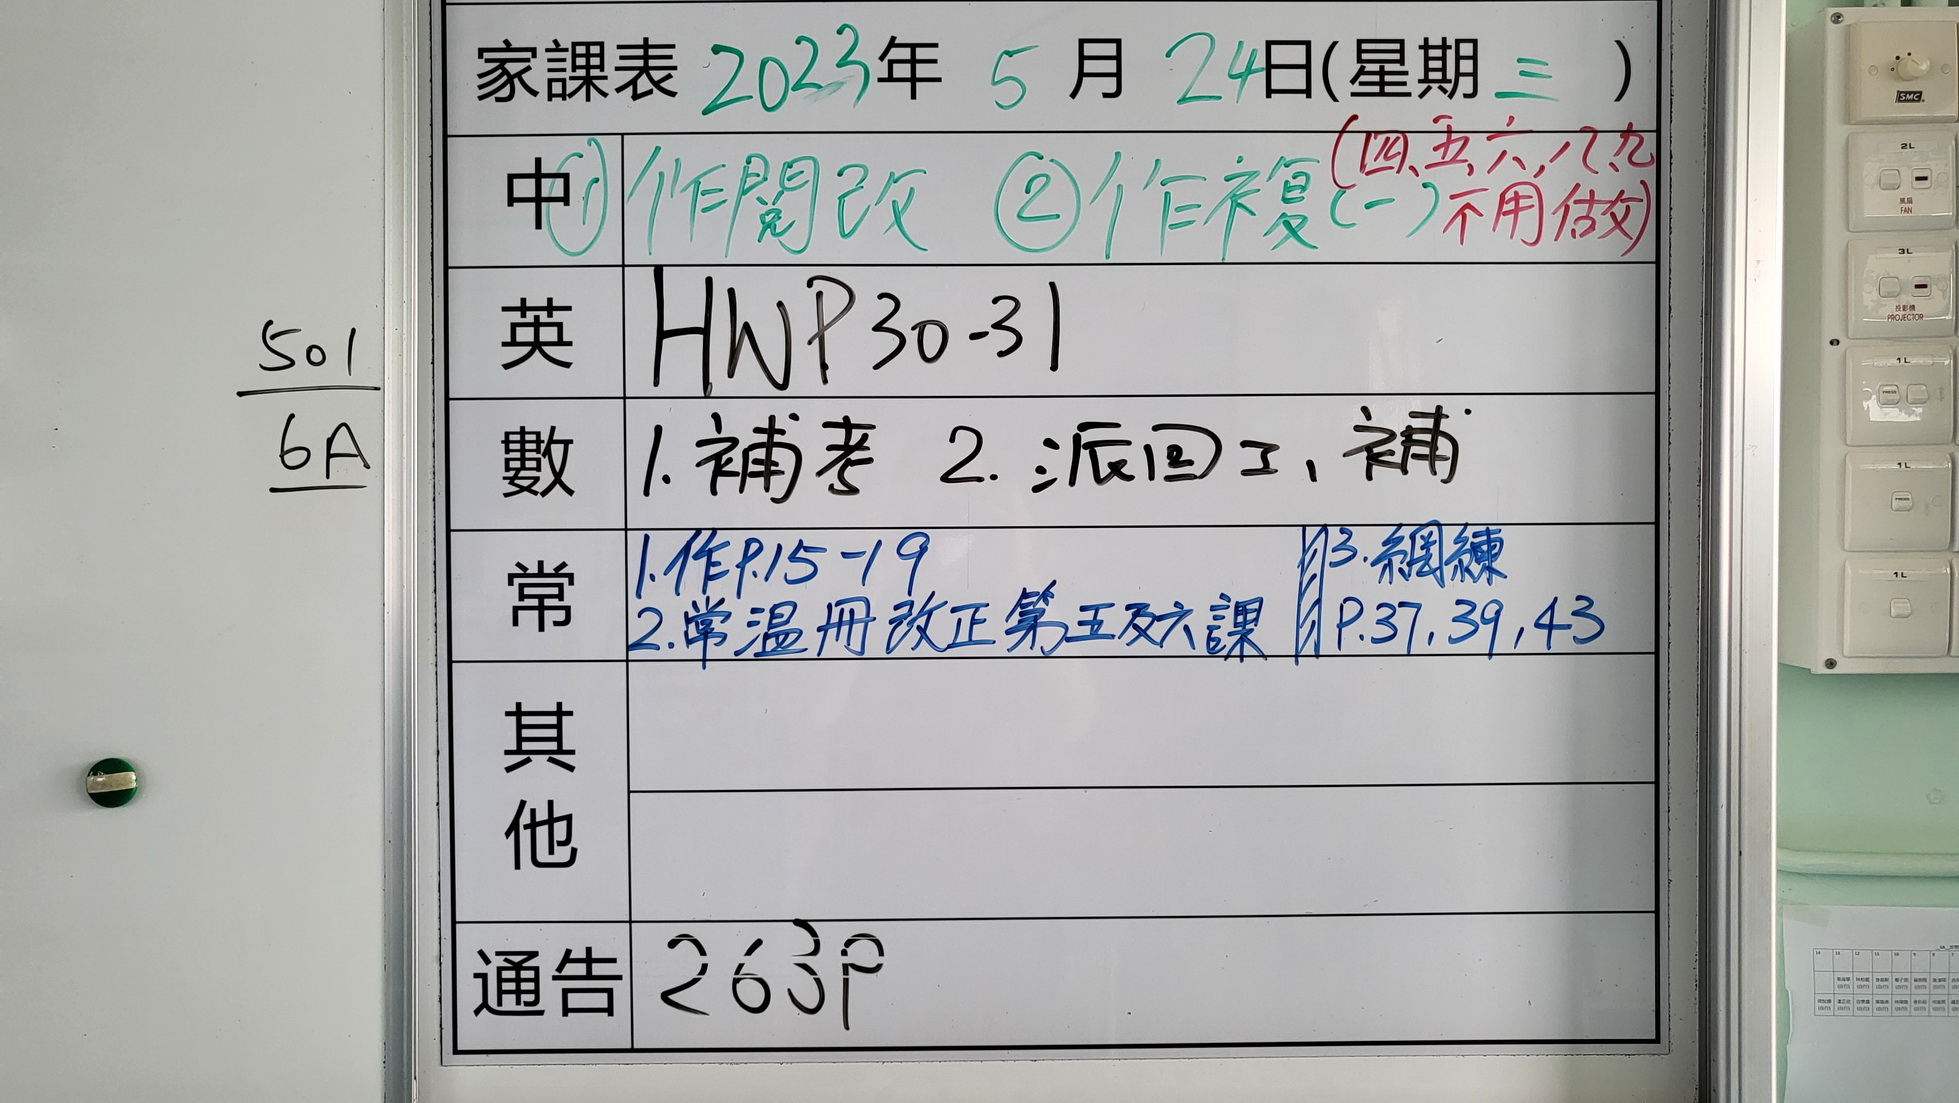 家課表 2023年 5 月 24日(星期 三 )
中 ① 作閱改 ② 作複(一) (四、五、六、八、九不用做)
英 HWP30-31
數 1. 補考 2. 派回工、補
常 1. 作P.15-19
2. 常溫冊改正第五及六課
3. 網練
P.37, 39, 43
其他
通告 263P
501
6A
SMC
2L
風扇
FAN
3L
投影機
PROJECTOR
1L
1L
1L